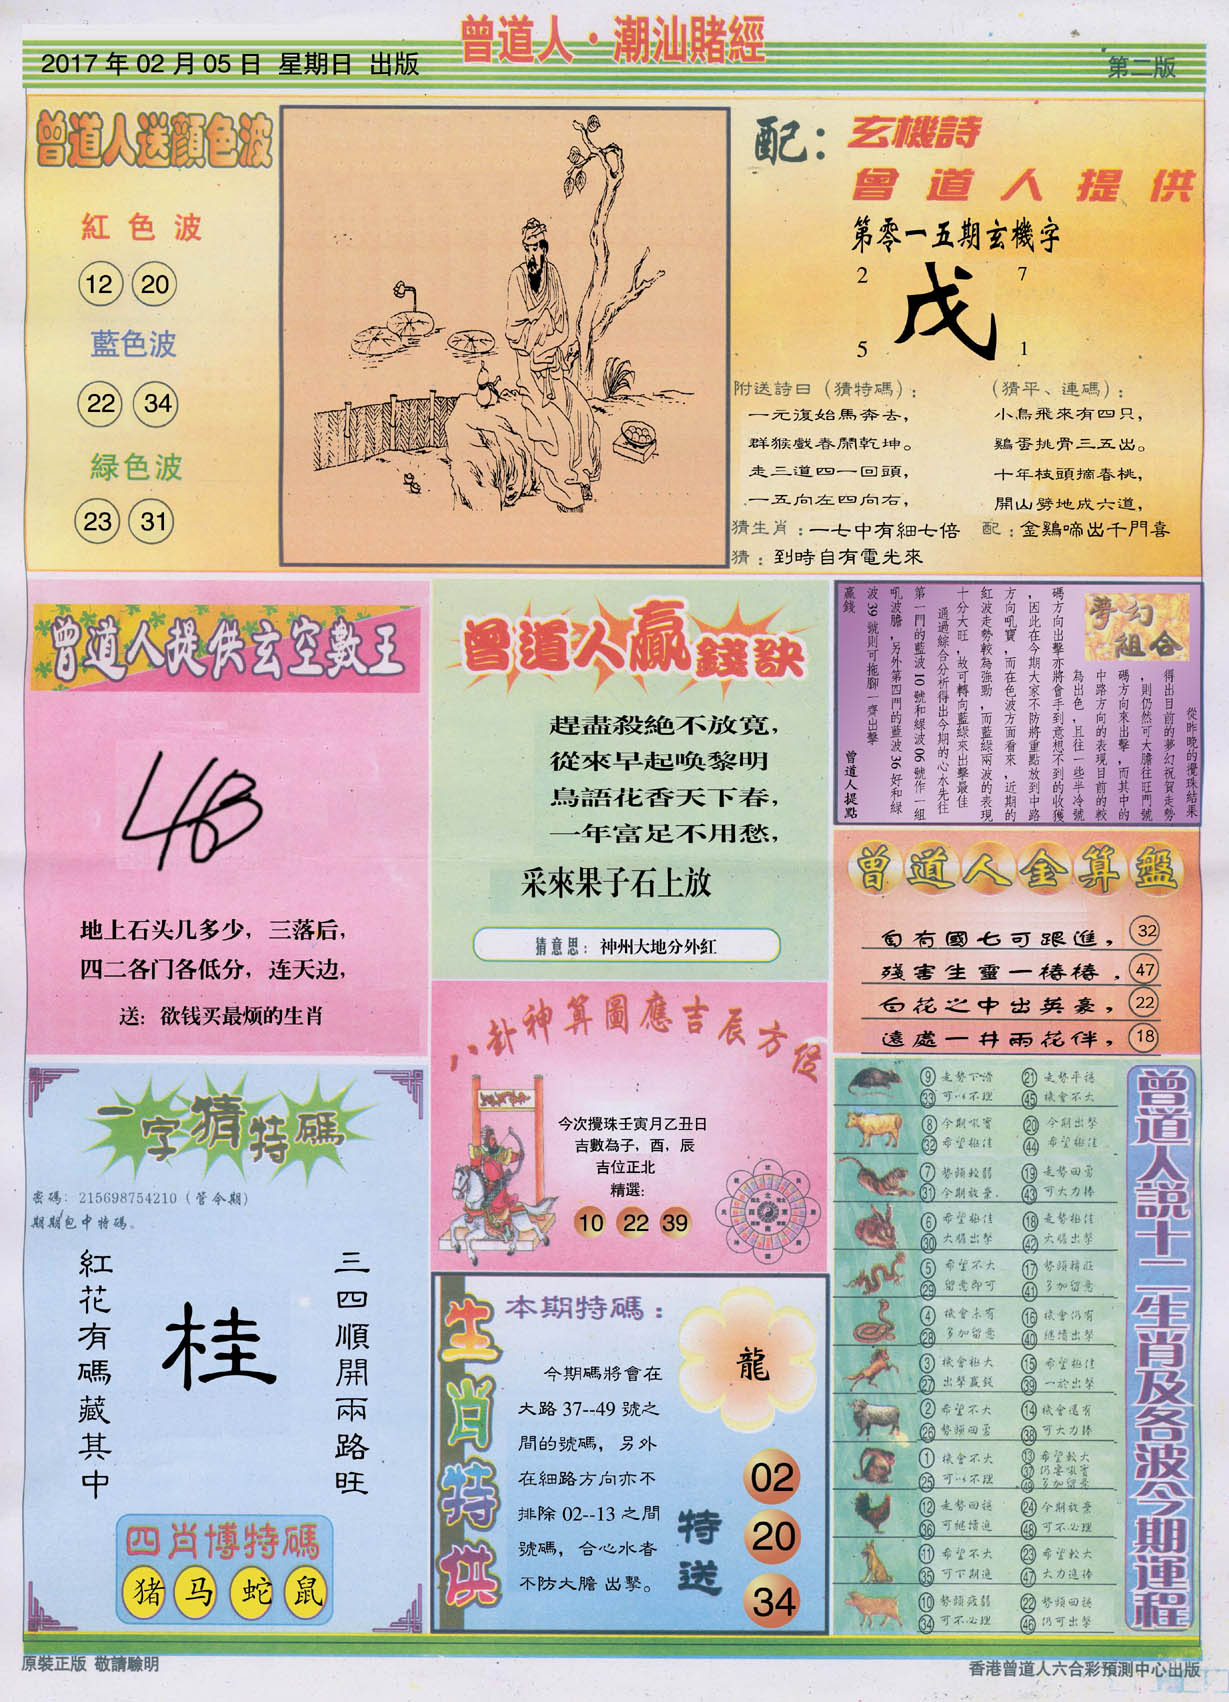 曾道人·潮汕賭經
2017年02月05日 星期日 出版
第二版
曾道人送顏色波
紅色波
12 20
藍色波
22 34
緑色波
23 31
配：玄機詩
曾道人提供
第零一五期玄機字
2 7
戊
5 1
附送詩曰（猜特碼）：
一元復始馬奔去，
群猴戲春鬧乾坤。
走三道四一回頭，
一五向左四向右，
（猜平、連碼）：
小鳥飛來有四只，
鷄蛋挑骨三五出。
十年枝頭摘春桃，
開山劈地成六道，
猜生肖：一七中有細七倍
配：金鷄啼出千門喜
猜：到時自有電光來
曾道人提供玄空數王
地上石头几多少，三落后，
四二各门各低分，连天边，
送：欲钱买最烦的生肖
曾道人贏錢訣
趕盡殺絶不放寬，
從來早起唤黎明
鳥語花香天下春，
一年富足不用愁，
采來果子石上放
猜意思：神州大地分外紅
夢幻
組合
從昨晚的攪珠結果
得出目前的夢幻祝賀走勢
，則仍然可大膽往旺門號
碼方向來出擊，而其中的
中路方向的表現目前的較
為出色，且往一些半冷號
碼方向出擊亦將會手到意想不到的收獲
，因此在今期大家不防將重點放到中路
方向吼寶，而在色波方面看來，近期的
紅波走勢較為強勁，而藍綠兩波的表現
十分大旺，故可轉向藍綠來出擊最佳
通過綜合分析得出今期的心水先往
第一門的藍波10號和綠波06號作一組
吼波膽，另外第四門的藍波36好和綠
波39號則可拖腳一齊出擊
贏錢
曾道人提點
曾道人金算盤
自有國七可跟進， 32
殘害生靈一樁樁． 47
白花之中出英豪， 22
遠處一井兩花伴， 18
八卦神算圖應吉辰方位
今次攪珠壬寅月乙丑日
吉數為子，酉，辰
吉位正北
精選:
10 22 39
一字猜特碼
密碼：215698754210（管令期）
期期包中特碼。
三四順開兩路旺
桂
紅花有碼藏其中
四肖博特碼
猪 马 蛇 鼠
生肖特供
本期特碼：
龍
今期碼將會在
大路37--49號之
間的號碼，另外
在細路方向亦不
排除02--13之間
號碼，合心水者
不防大膽 出擊。
特送
02
20
34
曾道人説十二生肖及各波今期運程
9 走勢下滑 21 走勢平穩
33 可以不理 45 機會不大
8 今期吼寶 20 今期出擊
32 希望極佳 44 希望極佳
7 勢頭較弱 19 走勢回勇
31 今期放棄. 43 可大力捧
6 希望極佳 18 走勢極佳
30 大膽出擊 42 大膽出擊
5 希望不大 17 勢頭轉旺
29 留意即可 41 多加留意
4 機會未有 16 機會仍有
28 多加留意 40 繼續出擊
3 機會極大 15 希望極佳
27 出擊贏錢 39 一於出擊
2 希望不大 14 機會還有
26 勢頭回勇 38 可大力捧
1 機會不大 13 希望較大
25 可以不理 37 仍要吼實
49 多加留意
12 走勢回穩 24 今期放棄
36 可繼續追 48 可不必理
11 希望不大 23 希望較大
35 可下期追 47 大力追捧
10 勢頭疲弱 22 勢頭回穩
34 可不必理 46 仍可出擊
原裝正版 敬請驗明
香港曾道人六合彩預測中心出版